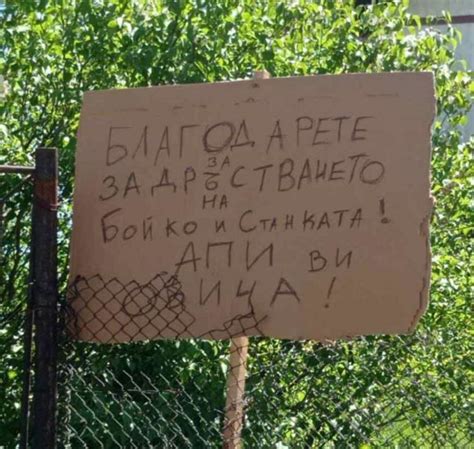 БЛАГОДАРЕТЕ
ЗА
ЗАДРЪСТВАНЕТО
НА
Бойко и Станката!
АПИ ви
ОБИЧА!